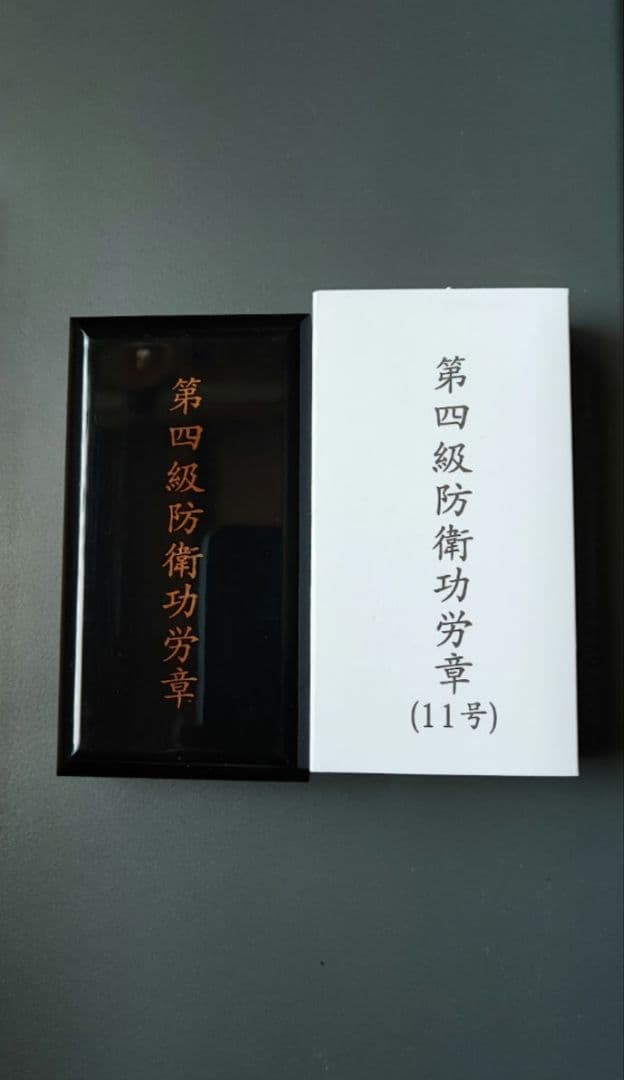 第四級防衛功労章
第四級防衛功労章
(11号)